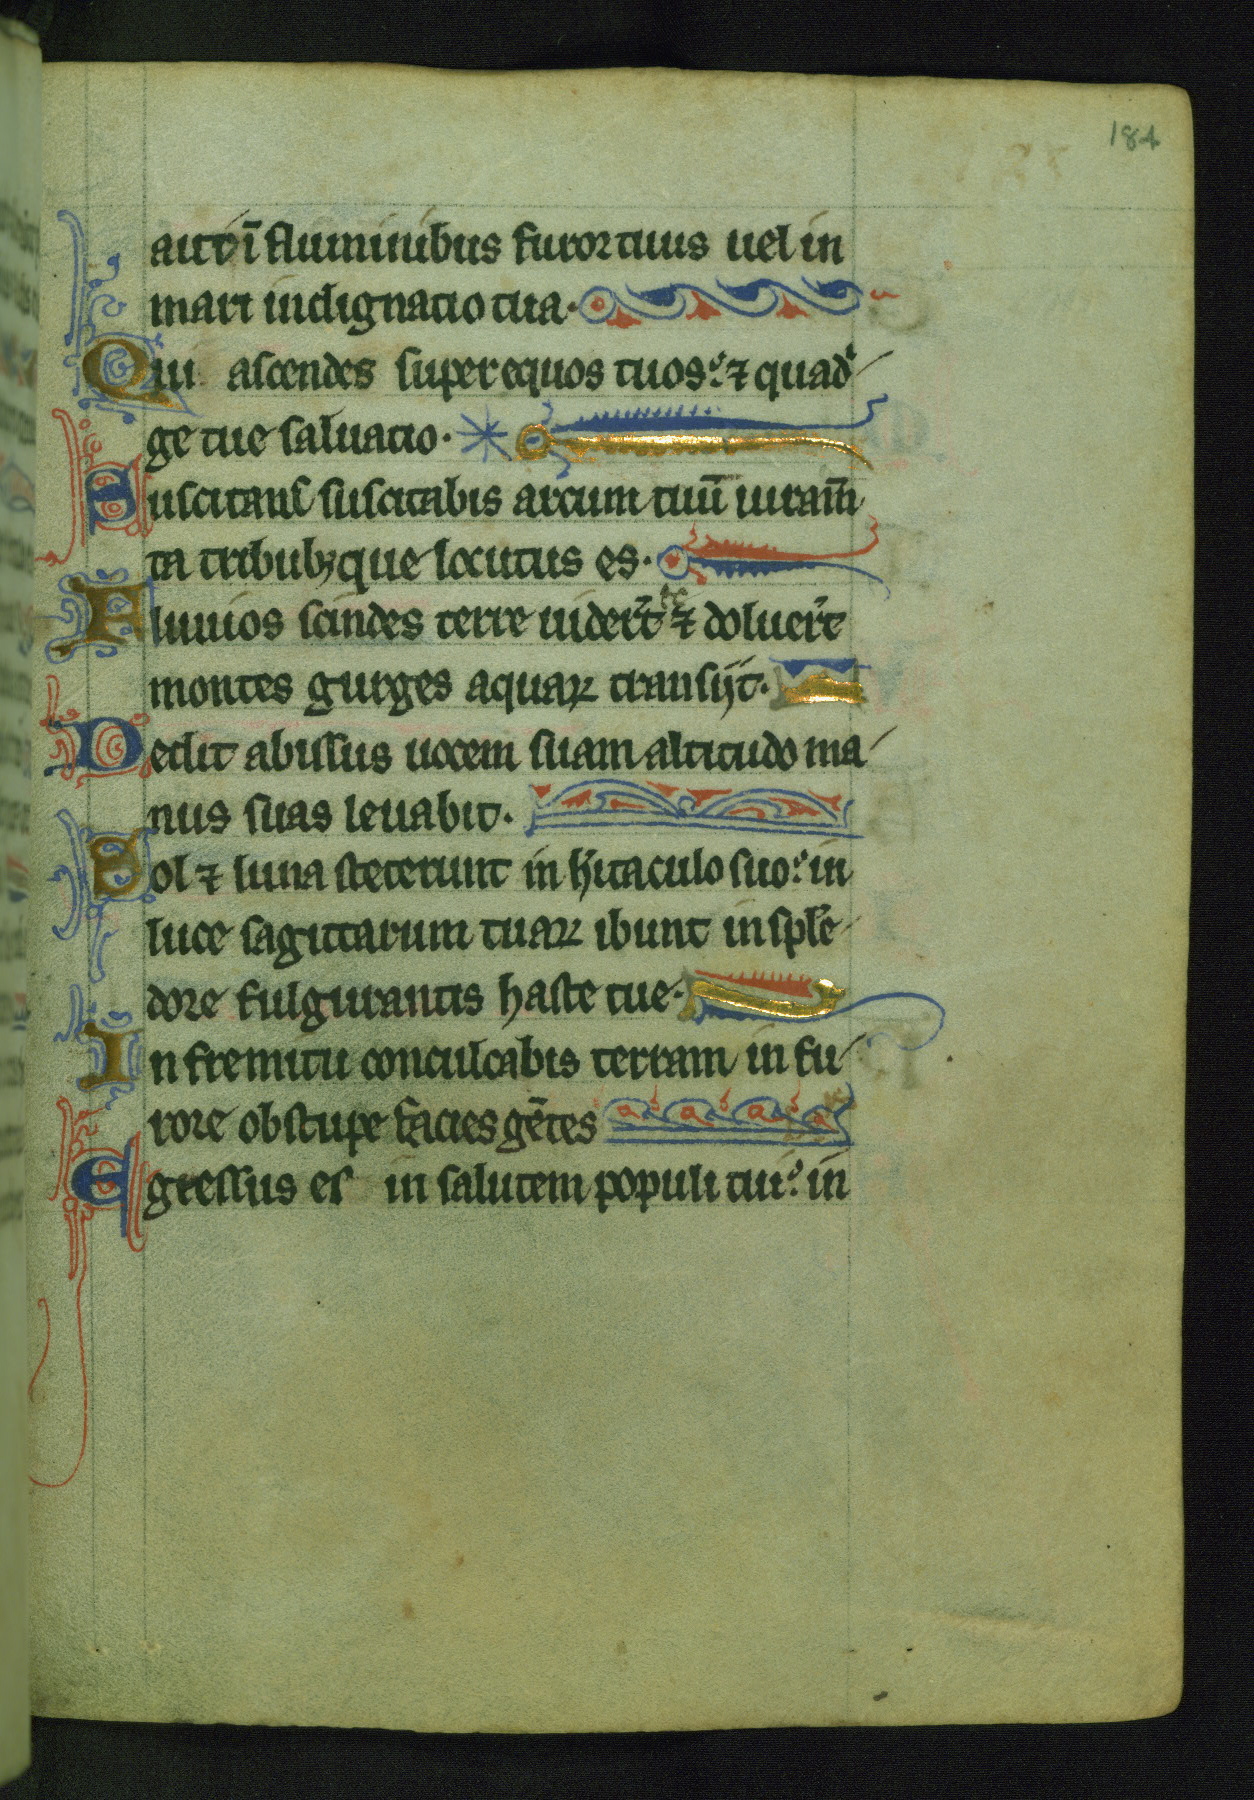 184
aut ī fluminibus furor tuus uel in
mari indignatio tua·
Qui ascendes super equos tuos: ⁊ quad
ge tue saluatio·
Suscitans suscitabis arcum tuū iuram̄
ta tribubꝫ que locutus es·
Fluuios scindes terre uider̄t te ⁊ doluer̄t
montes gurges aquaꝝ transijt·
Dedit abissus uocem suam altitudo ma
nus suas leuabit·
Sol ⁊ luna steterunt in h̄itaculo suo: in
luce sagittarum tuaꝝ ibunt in splē
dore fulgurantis haste tue·
In fremitu conculcabis terram in fu
rore obstupe facies gētes
Egressus es in salutem populi tui: in